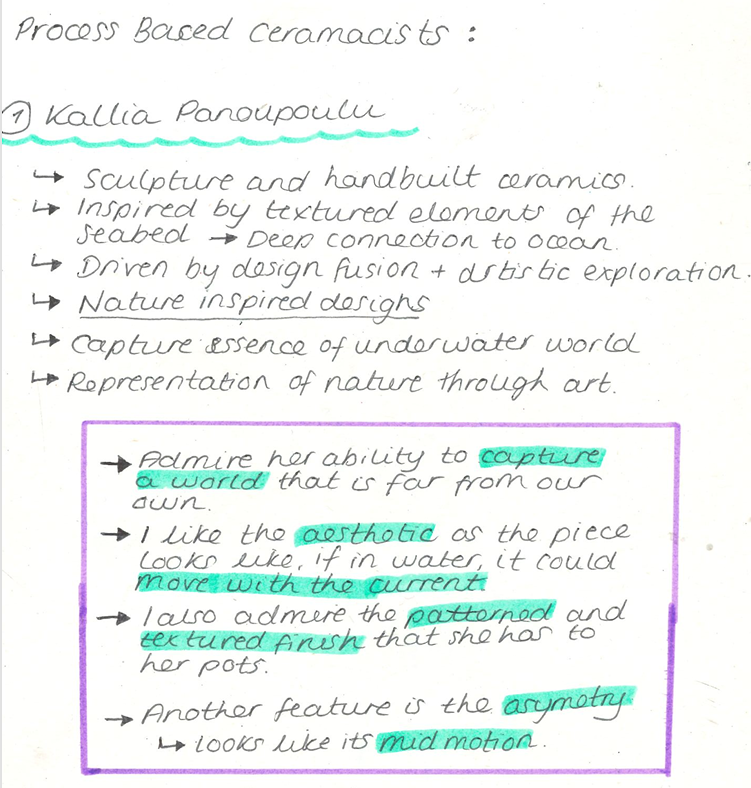 Process Based ceramacists :
1 Kallia Panoupoulu
↳ Sculpture and handbuilt ceramics.
↳ Inspired by textured elements of the
seabed → Deep connection to ocean.
↳ Driven by design fusion + artistic exploration.
↳ Nature inspired designs
↳ Capture essence of underwater world
↳ Representation of nature through art.
→ Admire her ability to capture
a world that is far from our
own.
→ I like the aesthetic as the piece
looks like, if in water, it could
move with the current
→ I also admire the patterned and
textured finish that she has to
her pots.
→ Another feature is the asymetry
↳ looks like its mid motion.